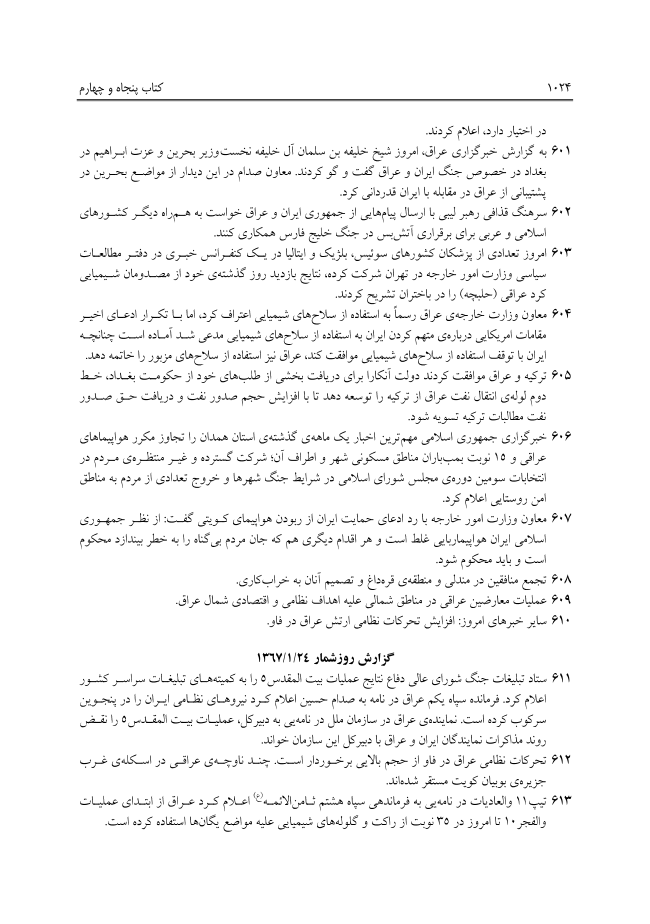 ۱۰۲۴ کتاب پنجاه و چهارم
در اختیار دارد، اعلام کردند.
۶۰۱ به گزارش خبرگزاری عراق، امروز شیخ خلیفه بن سلمان آل خلیفه نخست‌وزیر بحرین و عزت ابراهیم در
بغداد در خصوص جنگ ایران و عراق گفت و گو کردند. معاون صدام در این دیدار از مواضع بحرین در
پشتیبانی از عراق در مقابله با ایران قدردانی کرد.
۶۰۲ سرهنگ قذافی رهبر لیبی با ارسال پیام‌هایی از جمهوری ایران و عراق خواست به همراه دیگر کشورهای
اسلامی و عربی برای برقراری آتش‌بس در جنگ خلیج فارس همکاری کنند.
۶۰۳ امروز تعدادی از پزشکان کشورهای سوئیس، بلژیک و ایتالیا در یک کنفرانس خبری در دفتر مطالعات
سیاسی وزارت امور خارجه در تهران شرکت کرده، نتایج بازدید روز گذشته‌ی خود از مصدومان شیمیایی
کرد عراقی (حلبچه) را در باختران تشریح کردند.
۶۰۴ معاون وزارت خارجه‌ی عراق رسماً به استفاده از سلاح‌های شیمیایی اعتراف کرد، اما با تکرار ادعای اخیر
مقامات امریکایی درباره‌ی متهم کردن ایران به استفاده از سلاح‌های شیمیایی مدعی شد آماده است چنانچه
ایران با توقف استفاده از سلاح‌های شیمیایی موافقت کند، عراق نیز استفاده از سلاح‌های مزبور را خاتمه دهد.
۶۰۵ ترکیه و عراق موافقت کردند دولت آنکارا برای دریافت بخشی از طلب‌های خود از حکومت بغداد، خط
دوم لوله‌ی انتقال نفت عراق از ترکیه را توسعه دهد تا با افزایش حجم صدور نفت و دریافت حق صدور
نفت مطالبات ترکیه تسویه شود.
۶۰۶ خبرگزاری جمهوری اسلامی مهم‌ترین اخبار یک ماهه‌ی گذشته‌ی استان همدان را تجاوز مکرر هواپیماهای
عراقی و ۱۵ نوبت بمب‌باران مناطق مسکونی شهر و اطراف آن؛ شرکت گسترده و غیر منتظره‌ی مردم در
انتخابات سومین دوره‌ی مجلس شورای اسلامی در شرایط جنگ شهرها و خروج تعدادی از مردم به مناطق
امن روستایی اعلام کرد.
۶۰۷ معاون وزارت امور خارجه با رد ادعای حمایت ایران از ربودن هواپیمای کویتی گفت: از نظر جمهوری
اسلامی ایران هواپیماربایی غلط است و هر اقدام دیگری هم که جان مردم بی‌گناه را به خطر بیندازد محکوم
است و باید محکوم شود.
۶۰۸ تجمع منافقین در مندلی و منطقه‌ی قره‌داغ و تصمیم آنان به خراب‌کاری.
۶۰۹ عملیات معارضین عراقی در مناطق شمالی علیه اهداف نظامی و اقتصادی شمال عراق.
۶۱۰ سایر خبرهای امروز: افزایش تحرکات نظامی ارتش عراق در فاو.
گزارش روزشمار ۱۳۶۷/۱/۲۴
۶۱۱ ستاد تبلیغات جنگ شورای عالی دفاع نتایج عملیات بیت المقدس۵ را به کمیته‌های تبلیغات سراسر کشور
اعلام کرد. فرمانده سپاه یکم عراق در نامه به صدام حسین اعلام کرد نیروهای نظامی ایران را در پنجوین
سرکوب کرده است. نماینده‌ی عراق در سازمان ملل در نامه‌یی به دبیرکل، عملیات بیت المقدس۵ را نقض
روند مذاکرات نمایندگان ایران و عراق با دبیرکل این سازمان خواند.
۶۱۲ تحرکات نظامی عراق در فاو از حجم بالایی برخوردار است. چند ناوچه‌ی عراقی در اسکله‌ی غرب
جزیره‌ی بوبیان کویت مستقر شده‌اند.
۶۱۳ تیپ۱۱ والعادیات در نامه‌یی به فرماندهی سپاه هشتم ثامن‌الائمه(ع) اعلام کرد عراق از ابتدای عملیات
والفجر۱۰ تا امروز در ۳۵ نوبت از راکت و گلوله‌های شیمیایی علیه مواضع یگان‌ها استفاده کرده است.